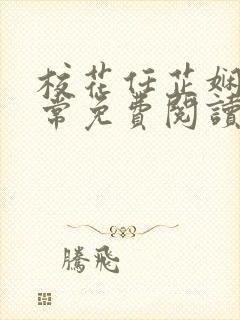 校花任芷娴
常免費閱讀
騰飛